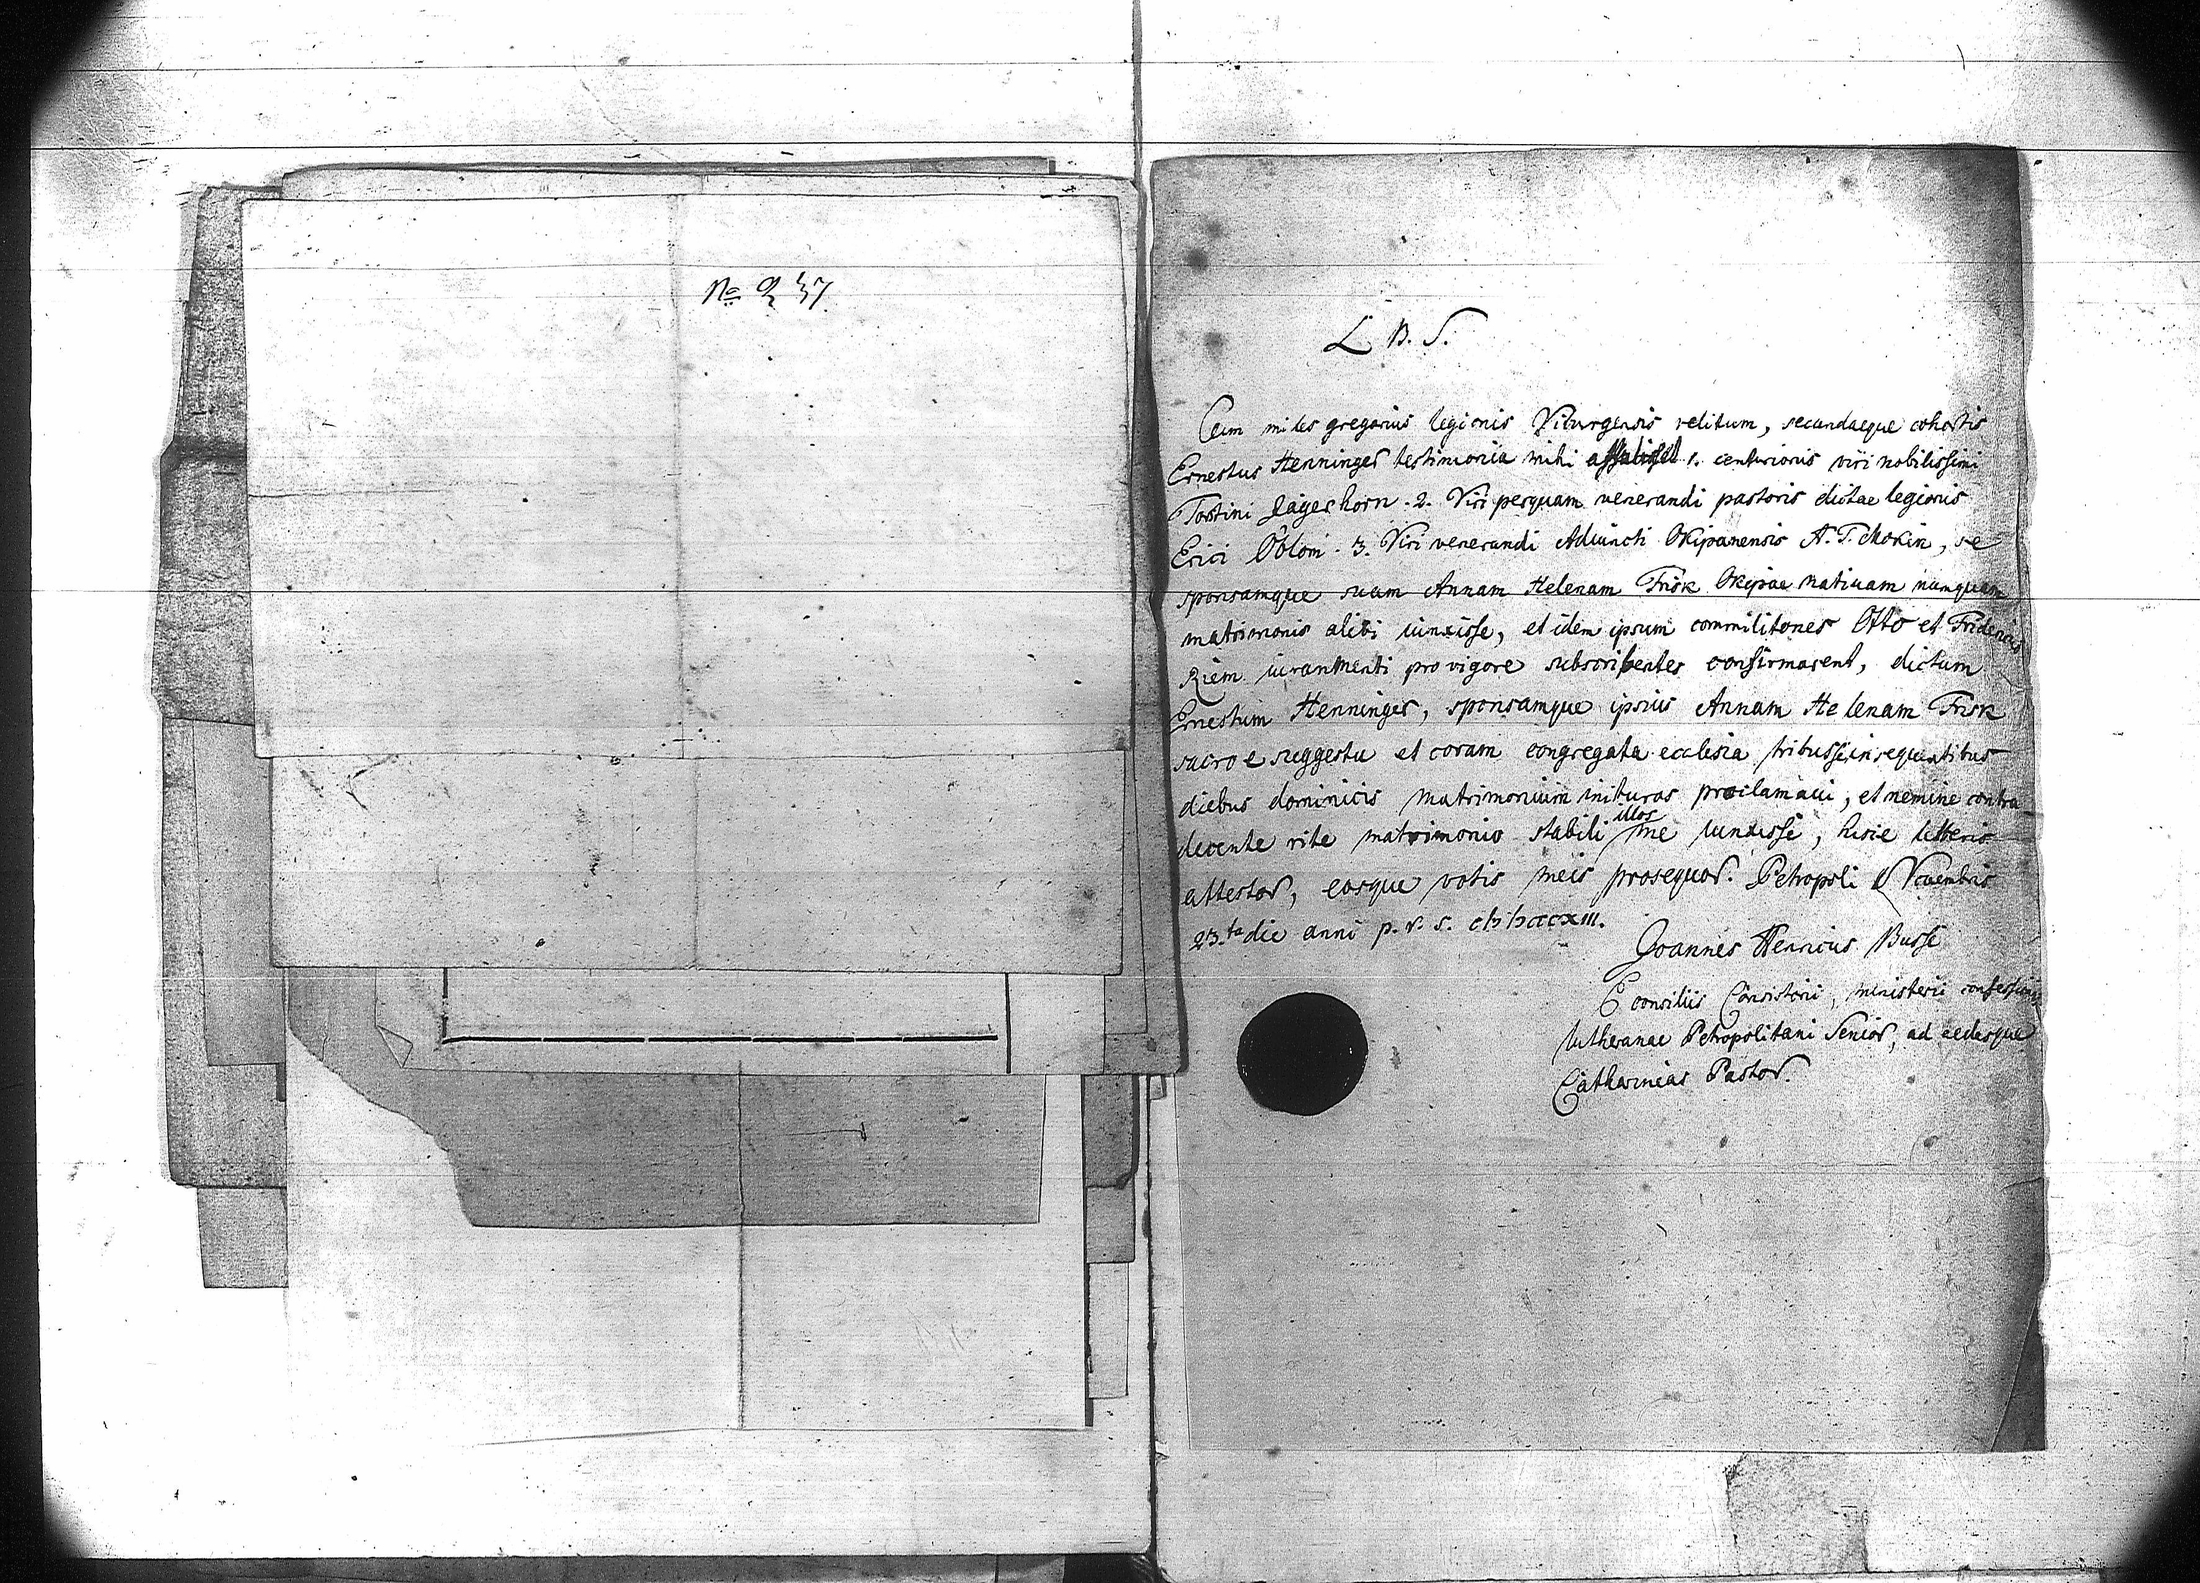 No 2 37.
L. B. S.
Cum miles gregarius legionis Viburgensis velitum, secundaeque cohortis
Ernestus Henninger testimonia mihi 1. centurionis viri nobilissimi
Jägerhorn. 2. Viri perquam venerandi pastoris dictae legionis
Erici 3. Viri venerandi Adiuncti Okipanensis A. T. Mokin, se
sponsamque suam Annam Helenam Frisk Okipae nativam nunquam
matrimonio alibi iunxisse, et idem ipsum commilitones Otto et Fridericus
Riem iuramenti pro vigore subscribentes confirmarent, dictum
Ernestum Henninger, sponsamque ipsius Annam Helenam Frisk
sacro e suggestu et coram congregata ecclesia tribus insequentibus
diebus dominicis matrimonium inituros proclamavi, et nemine contra
dicente rite matrimonio stabili illos me iunxisse, hisce litteris
attestor, eosque votis meis prosequor. Petropoli Novembris
23.ta die anni p. r. s.
Joannes Henricus Busse
E consiliis Consistorii, ministerii confessionis
lutheranae Petropolitani Senior, ad aedesque
Catharineas Pastor.